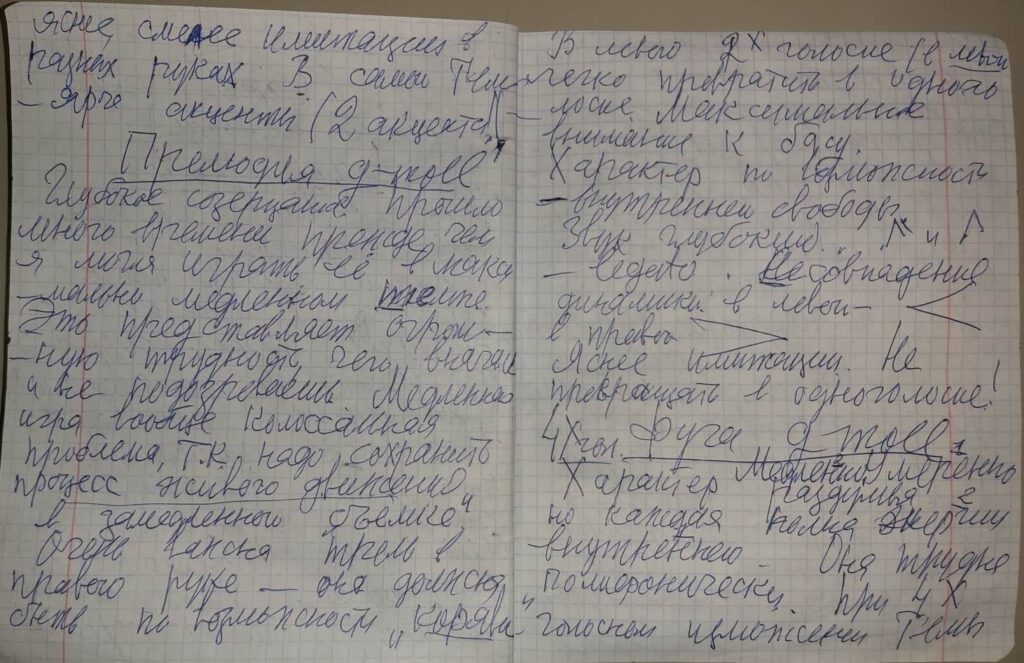 яснее, смелее имитации в
разных руках. В самой Теме
– ярче акценты (2 акцента)
Прелюдия d-moll
Глубокое созерцание прошло
много времени прежде чем
я могла играть её в макси
–мально медленном темпе.
Это представляет огром–
–ную трудность, чего вначале
и не подозреваешь Медленная
игра вообще колоссальная
проблема, т.к. надо сохранить
процесс живого движения
в замедленной съемке"
Очень важна трель в
правой руке – она должна
быть по возможности „корява"
В левого 2х голосие (в левой
легко превратить в одного
лосие. Максимальное
внимание к басу.
Характер по возможности
– внутренней свободы
Звук глубокий. Λ и Λ
– ведено. Несовпадения
динамики в левой – <
в правой >
Яснее имитации. Не
превращать в одноголосие!
4Х гол. Фуга d moll
Характер Медленно, Умеренно
но каждая полна энергии
внутреннего. Она трудна
полифонически. При 4Х
голосном изложении Темы